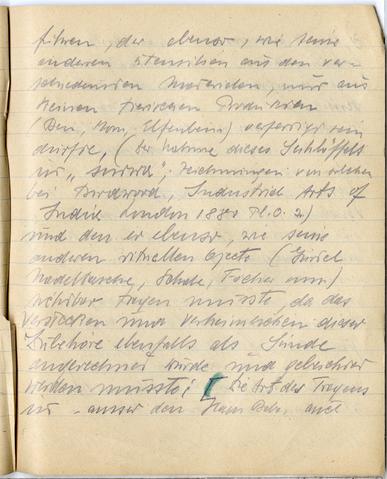 führen, der ebenso, wie seine
anderen Utensilien aus den ver-
schiedensten Materialien, nur aus
keinen tierischen Produkten
(Bein, Horn, Elfenbein) verfertigt sein
durfte, (Der Name dieses Schlüssels
ist "", Zeichnungen von solchen
bei Birdwood, Industrial Arts of
India London 1880 Pl. O. 2)
und den er ebenso, wie seine
anderen rituellen Objecte (Gürtel
Nadeltasche, Schale, Fächer usw)
sichtbar tragen musste, da das
Verstecken und Verheimlichen dieser
Zubehöre ebenfalls als Sünde
angerechnet würde und gebeichtet
werden musste; [Die Art des Tragens
ist - ausser den